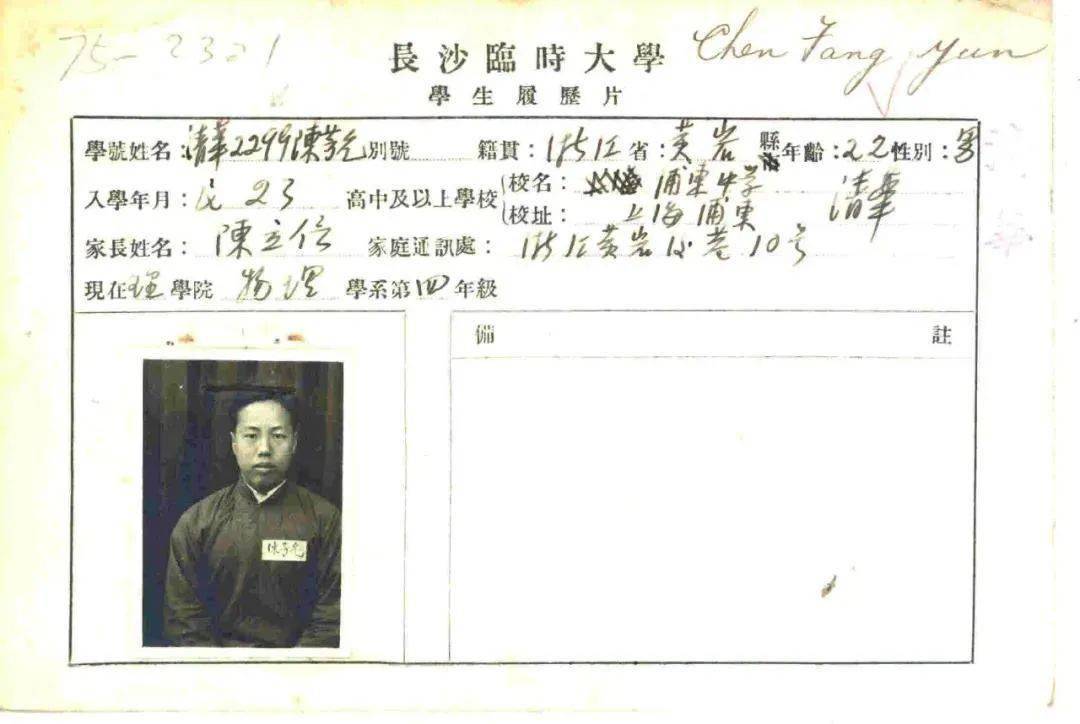 75-2321
長沙臨時大學
Chen Fang Yun
學生履歷片
學號姓名：清華2299陳芳允 別號 籍貫：浙江省：黃岩縣 年齡：22 性別：男
入學年月：民23 高中及以上學校 校名：浦東中学 清華
校址：上海浦東
家長姓名：陳立信 家庭通訊處：浙江黃岩 巷10号
現在理學院 物理 學系第四年級
備 註
陈芳允